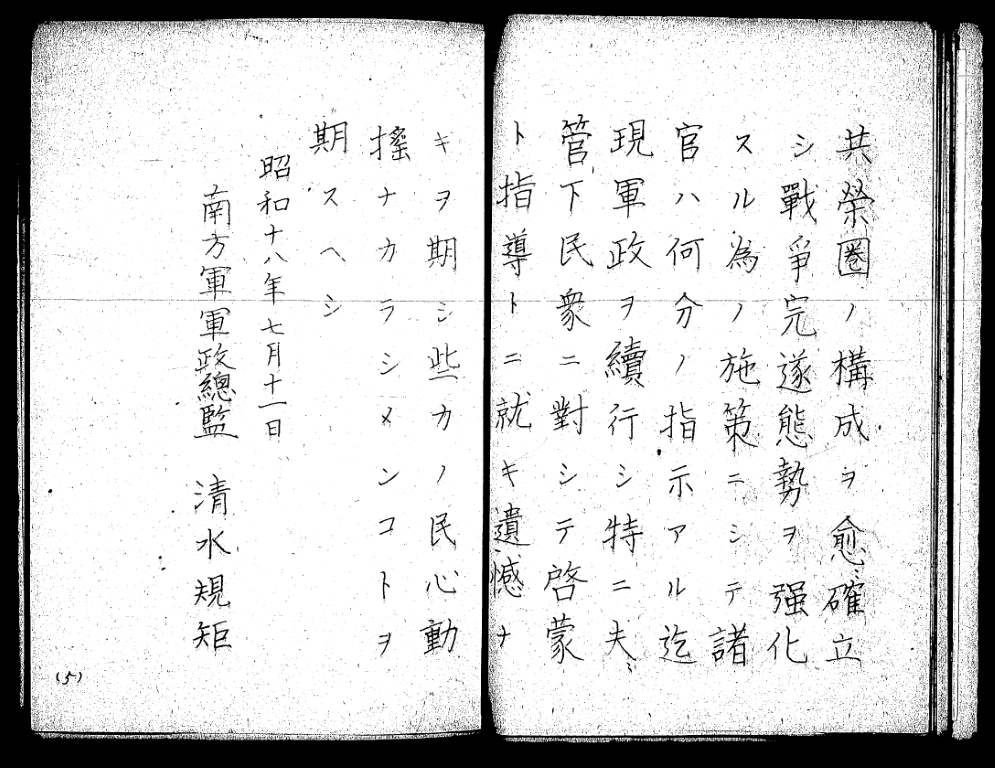 共榮圏ノ構成ヲ愈〻確立
シ戰爭完遂態勢ヲ强化
スル為ノ施策ニシテ諸
官ハ何分ノ指示アル迄
現軍政ヲ續行シ特ニ夫〻
管下民衆ニ對シテ啓蒙
ト指導トニ就キ遺憾ナ
キヲ期シ些カノ民心動
搖ナカラシメンコトヲ
期スヘシ
昭和十八年七月十一日
南方軍軍政總監 清水規矩
(5)